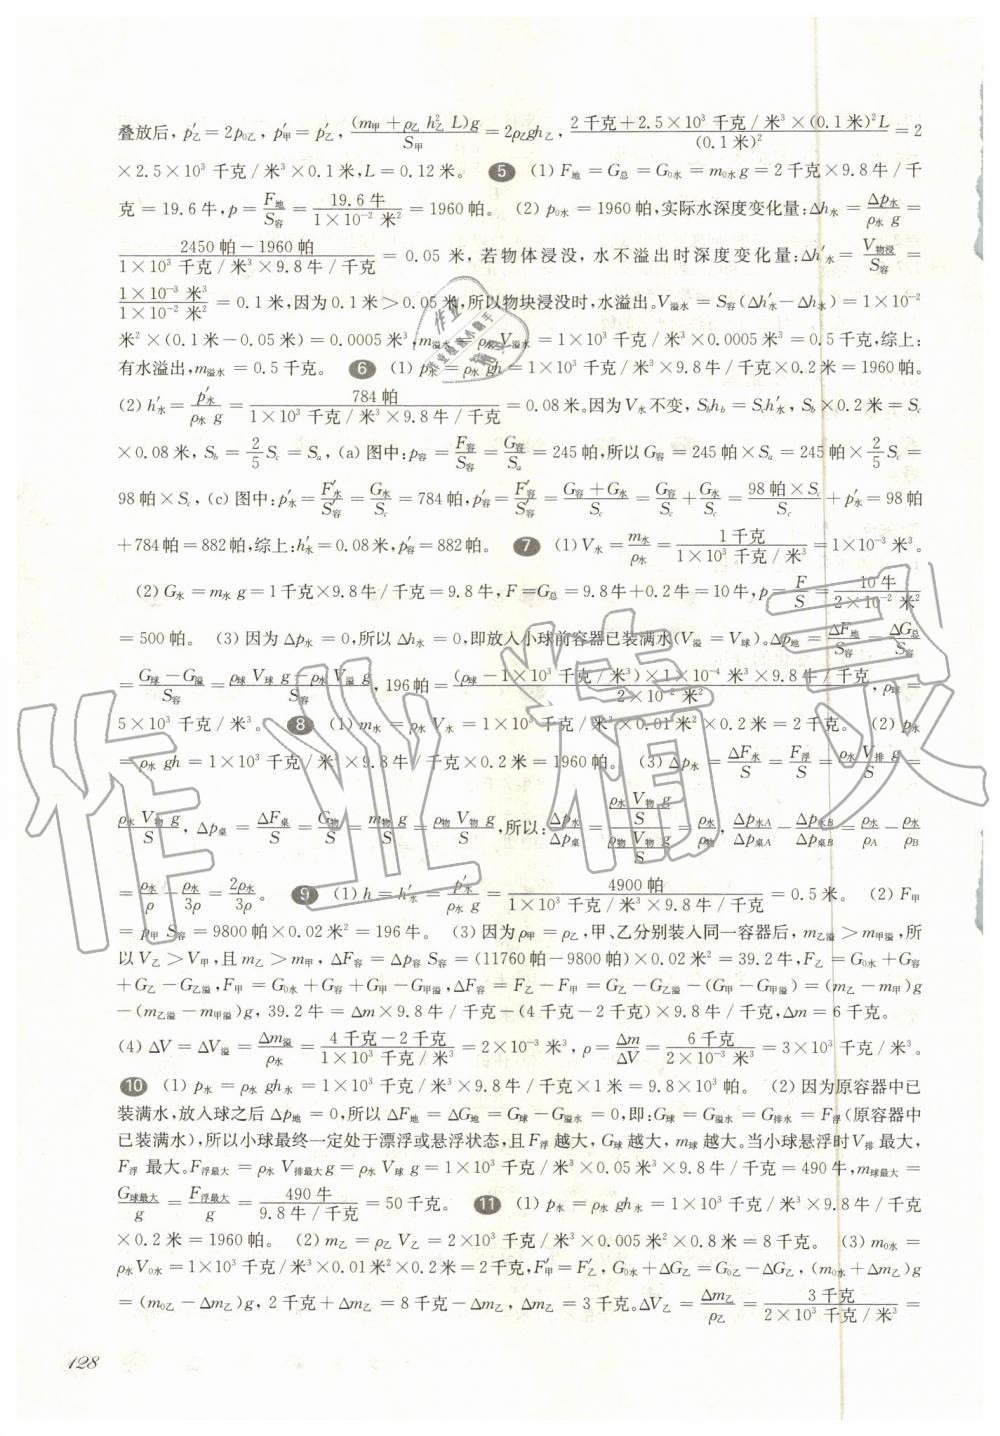 叠放后, p′乙=2p0乙, p′甲=p′乙, (m甲+ρ乙 h²乙 L)g/S甲=2ρ乙gh乙, 2千克+2.5×10³千克/米³×(0.1米)²L/(0.1米)²=2
×2.5×10³千克/米³×0.1米,L=0.12米。 5 (1) F地=G总=G0水=m0水g=2千克×9.8牛/千
克=19.6牛,p=F地/S容=19.6牛/1×10⁻²米²=1960帕。 (2) p0水=1960帕,实际水深度变化量:Δh水=Δp水/ρ水 g=
2450帕-1960帕/1×10³千克/米³×9.8牛/千克=0.05米,若物体浸没,水不溢出时深度变化量:Δh′水=V物浸/S容=
1×10⁻³米³/1×10⁻²米²=0.1米,因为0.1米>0.05米,所以物块浸没时,水溢出。V溢水=S容(Δh′水-Δh水)=1×10⁻²
米²×(0.1米-0.05米)=0.0005米³,m溢水=ρ水V溢水=1×10³千克/米³×0.0005米³=0.5千克,综上:
有水溢出,m溢水=0.5千克。 6 (1) p水=ρ水gh=1×10³千克/米³×9.8牛/千克×0.2米=1960帕。
(2) h′水=p′水/ρ水 g=784帕/1×10³千克/米³×9.8牛/千克=0.08米。因为V水不变, Sbhb=Sch′水, Sb×0.2米=Sc
×0.08米, Sb=2/5Sc=Sa, (a)图中:p容=F容/S容=G容/Sa=245帕,所以G容=245帕×Sa=245帕×2/5Sc=
98帕×Sc, (c)图中:p′水=F′水/S′容=G水/Sc=784帕,p′容=F′容/S′容=G容+G水/Sc=G容/Sc+G水/Sc=98帕×Sc/Sc+p′水=98帕
+784帕=882帕,综上:h′水=0.08米,p′容=882帕。 7 (1)V水=m水/ρ水=1千克/1×10³千克/米³=1×10⁻³米³。
(2) G水=m水g=1千克×9.8牛/千克=9.8牛, F=G总=9.8牛+0.2牛=10牛, p=F/S=10牛/2×10⁻²米²
=500帕。 (3) 因为Δp水=0,所以Δh水=0,即放入小球前容器已装满水(V溢=V球)。Δp地=ΔF地/S容=ΔG总/S容
=G球-G溢/S容=ρ球V球g-ρ水V溢g/S容, 196帕=(ρ球-1×10³千克/米³)×1×10⁻⁴米³×9.8牛/千克/2×10⁻²米², ρ球=
5×10³千克/米³。 8 (1) m水=ρ水V水=1×10³千克/米³×0.01米²×0.2米=2千克。 (2) p水
=ρ水gh=1×10³千克/米³×9.8牛/千克×0.2米=1960帕。 (3) Δp水=ΔF水/S=F浮/S=ρ水V排g/S=
ρ水V物g/S, Δp桌=ΔF桌/S=G物/S=m物g/S=ρ物V物g/S,所以:Δp水/Δp桌=ρ水V物g/S/ρ物V物g/S=ρ水/ρ物, Δp水A/Δp桌A-Δp水B/Δp桌B=ρ水/ρA-ρ水/ρB
=ρ水/ρ-ρ水/3ρ=2ρ水/3ρ。 9 (1) h=h′水=p′水/ρ水 g=4900帕/1×10³千克/米³×9.8牛/千克=0.5米。 (2) F甲
=p甲S容=9800帕×0.02米²=196牛。 (3) 因为ρ甲=ρ乙,甲、乙分别装入同一容器后, m乙溢>m甲溢,所
以V乙>V甲,且m乙>m甲, ΔF容=Δp容S容=(11760帕-9800帕)×0.02米²=39.2牛,F乙=G0水+G容
+G乙-G乙溢,F甲=G0水+G容+G甲-G甲溢,ΔF容=F乙-F甲=G乙-G乙溢-(G甲-G甲溢)=(m乙-m甲)g
-(m乙溢-m甲溢)g, 39.2牛=Δm×9.8牛/千克-(4千克-2千克)×9.8牛/千克,Δm=6千克。
(4) ΔV=ΔV溢=Δm溢/ρ水=4千克-2千克/1×10³千克/米³=2×10⁻³米³, ρ=Δm/ΔV=6千克/2×10⁻³米³=3×10³千克/米³。
10 (1) p水=ρ水gh水=1×10³千克/米³×9.8牛/千克×1米=9.8×10³帕。 (2) 因为原容器中已
装满水,放入球之后Δp地=0,所以ΔF地=ΔG地=G球-G溢水=0,即:G球=G溢水=G排水=F浮(原容器中
已装满水),所以小球最终一定处于漂浮或悬浮状态,且F浮越大,G球越大,m球越大。当小球悬浮时V排最大,
F浮最大。F浮最大=ρ水V排最大g=ρ水V球g=1×10³千克/米³×0.05米³×9.8牛/千克=490牛,m球最大=
G球最大/g=F浮最大/g=490牛/9.8牛/千克=50千克。 11 (1) p水=ρ水gh水=1×10³千克/米³×9.8牛/千克
×0.2米=1960帕。 (2) m乙=ρ乙V乙=2×10³千克/米³×0.005米²×0.8米=8千克。 (3) m0水=
ρ水V0水=1×10³千克/米³×0.01米²×0.2米=2千克,F′甲=F′乙, G0水+ΔG乙=G0乙-ΔG乙, (m0水+Δm乙)g
=(m0乙-Δm乙)g, 2千克+Δm乙=8千克-Δm乙, Δm乙=3千克。ΔV乙=Δm乙/ρ乙=3千克/2×10³千克/米³=
128
作业精灵